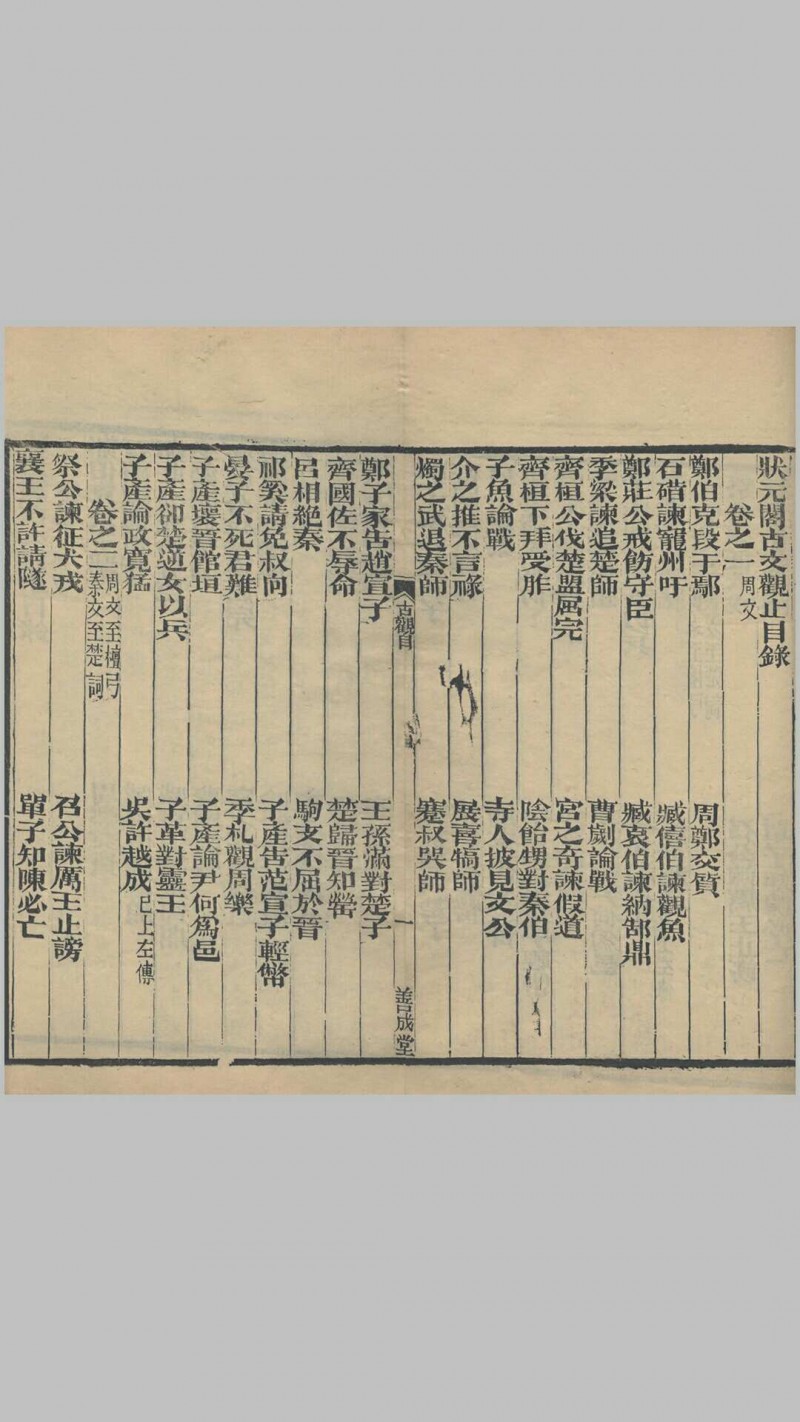 狀元閣古文觀止目錄
卷之一 周文
鄭伯克段于鄢 周鄭交質
石碏諫寵州吁 臧僖伯諫觀魚
鄭莊公戒飭守臣 臧哀伯諫納郜鼎
季梁諫追楚師 曹劌論戰
齊桓公伐楚盟屈完 宮之奇諫假道
齊桓下拜受胙 陰飴甥對秦伯
子魚論戰 寺人披見文公
介之推不言祿 展喜犒師
燭之武退秦師 蹇叔哭師
古觀目 一 善成堂
鄭子家告趙宣子 王孫滿對楚子
齊國佐不辱命 楚歸晉知罃
呂相絕秦 駒支不屈於晉
祁奚請免叔向 子產告范宣子輕幣
晏子不死君難 季札觀周樂
子產壞晉館垣 子產論尹何為邑
子產卻楚逆女以兵 子革對靈王
子產論政寬猛 吳許越成 已上左傳
卷之二 周文至檀弓 秦文至楚詞
祭公諫征犬戎 召公諫厲王止謗
襄王不許請隧 單子知陳必亡